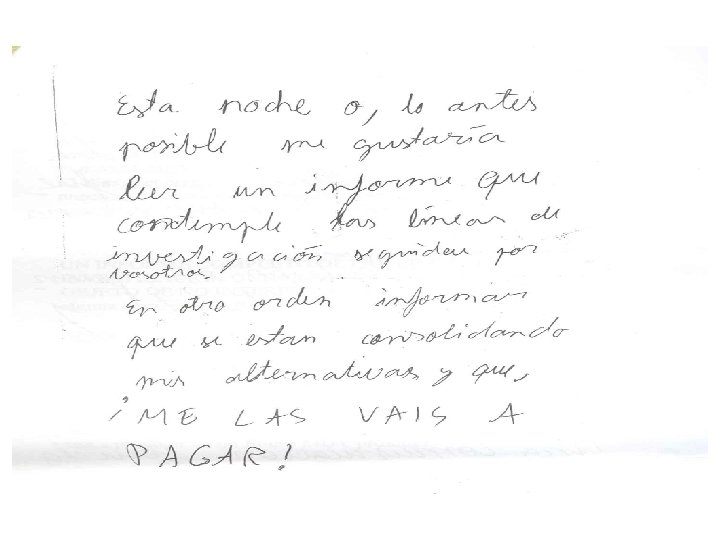 Esta noche o, lo antes
posible me gustaría
leer un informe que
contemple las líneas de
investigación seguidas por
vosotros.
En otro orden informar
que se estan consolidando
mis alternativas y que,
¡ME LAS VAIS A
PAGAR!